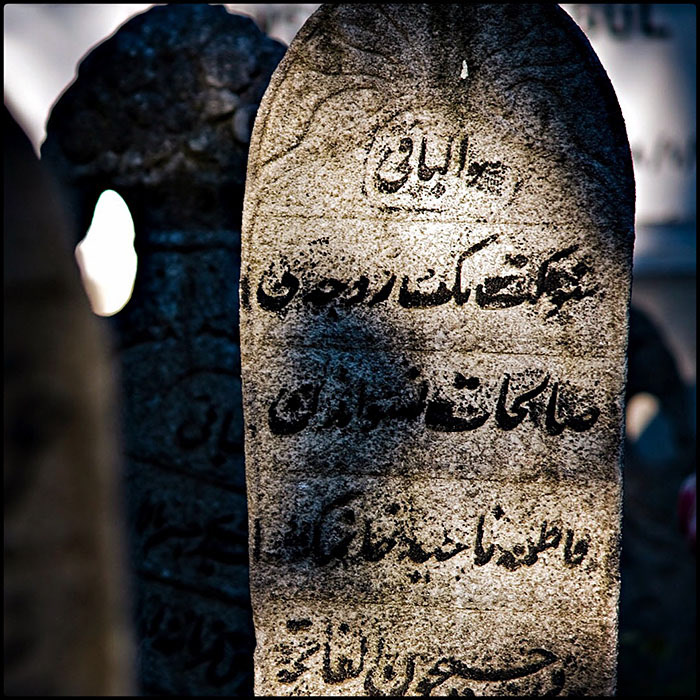 هو الباقی
شوكت بك زوجه سی
صالحات نسواندن
فاطمه ناجیه خانمك
روحیچون الفاتحة